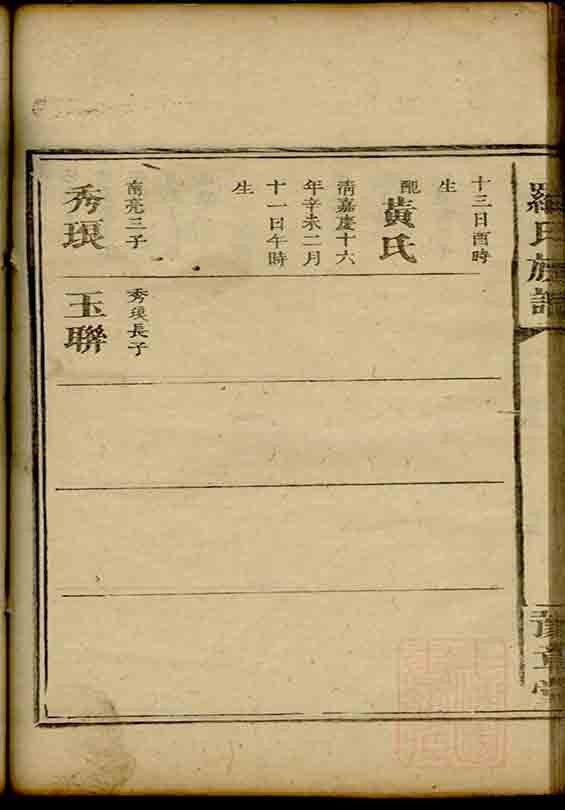 羅氏族譜
豫章堂
十三日酉時
生
配
黃氏
清嘉慶十六
年辛未二月
十一日午時
生
三子
秀琅
秀琅長子
玉聯